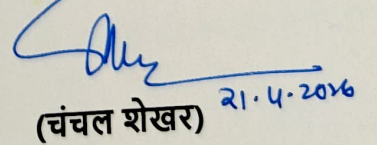 21.4.2026
(चंचल शेखर)